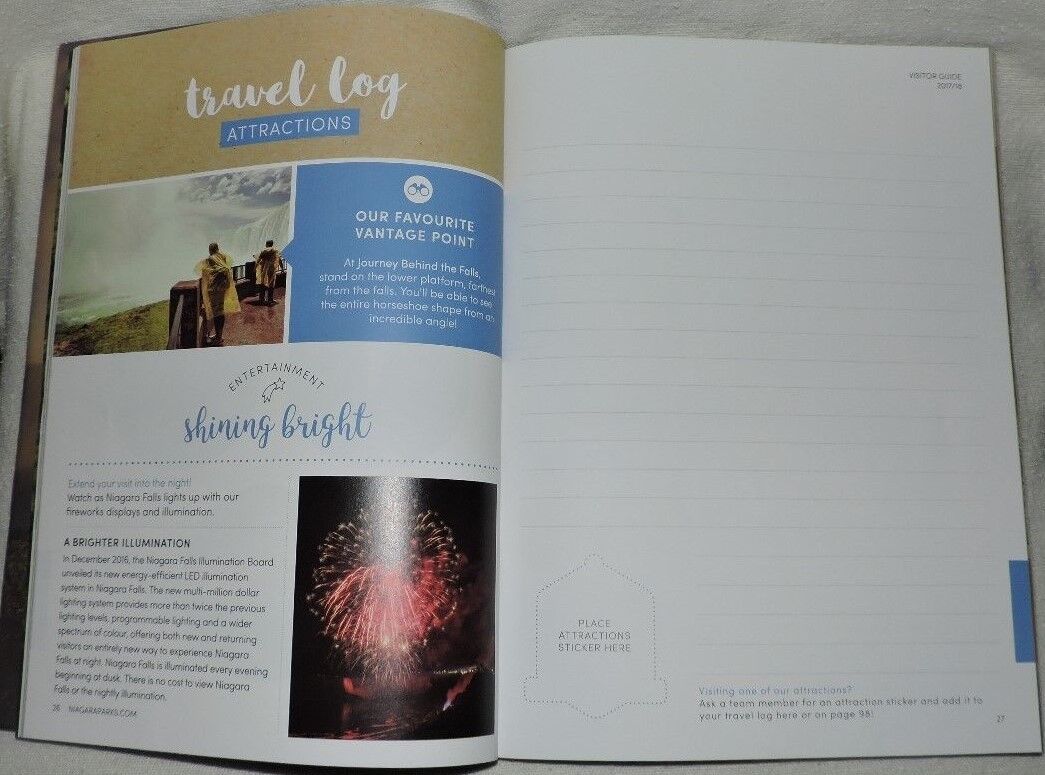 travel log
ATTRACTIONS
OUR FAVOURITE
VANTAGE POINT
At Journey Behind the Falls,
stand on the lower platform, farthest
from the falls. You'll be able to see
the entire horseshoe shape from an
incredible angle!
ENTERTAINMENT
shining bright
Extend your visit into the night!
Watch as Niagara Falls lights up with our
fireworks displays and illumination.
A BRIGHTER ILLUMINATION
In December 2016, the Niagara Falls Illumination Board
unveiled its new energy-efficient LED illumination
system in Niagara Falls. The new multi-million dollar
lighting system provides more than twice the previous
lighting levels, programmable lighting and a wider
spectrum of colour, offering both new and returning
visitors an entirely new way to experience Niagara
Falls at night. Niagara Falls is illuminated every evening
beginning at dusk. There is no cost to view Niagara
Falls or the nightly illumination.
26 NIAGARAPARKS.COM
VISITOR GUIDE
2017/18
PLACE
ATTRACTIONS
STICKER HERE
Visiting one of our attractions?
Ask a team member for an attraction sticker and add it to
your travel log here or on page 98!
27